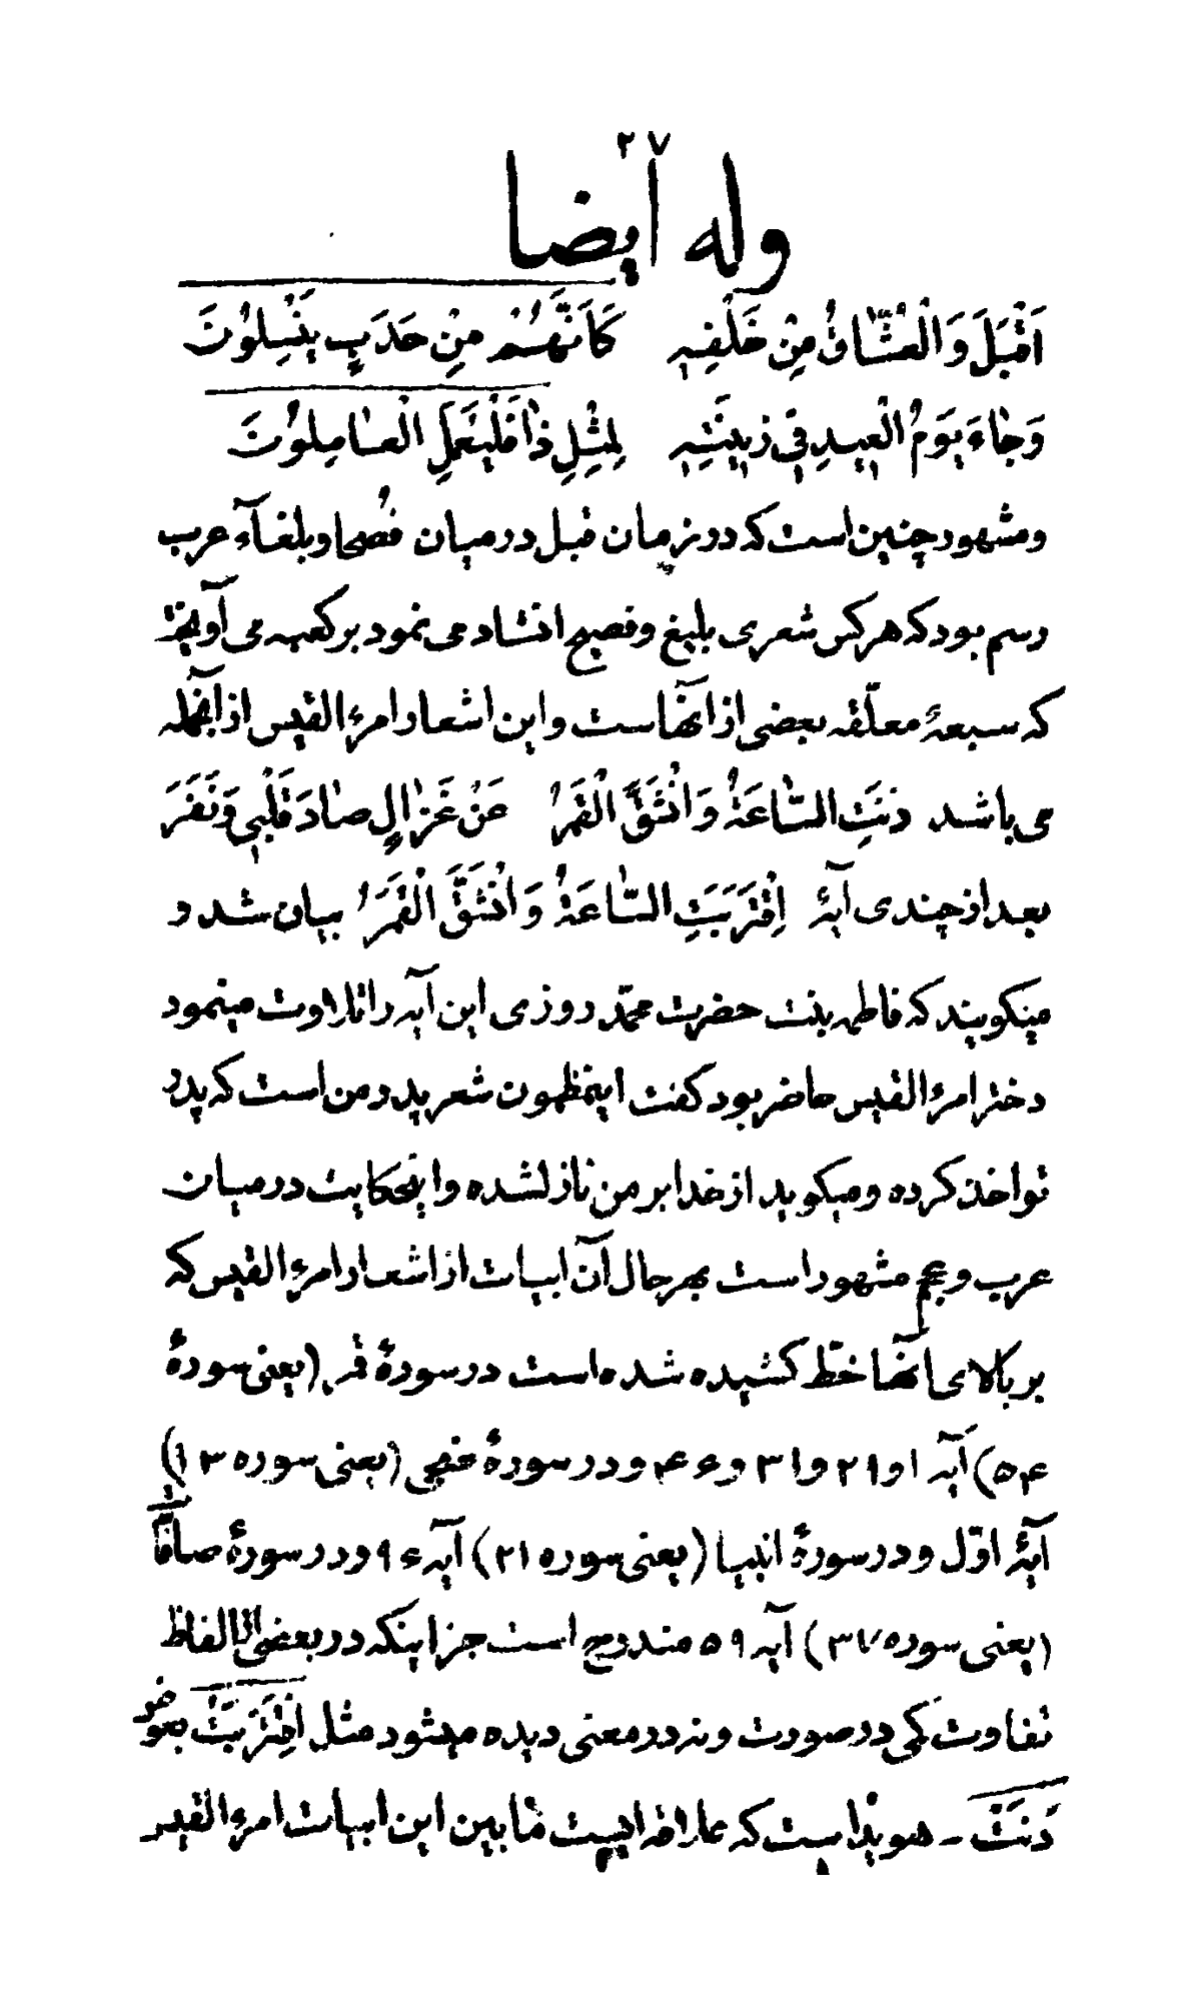 ۲۷
وله أيضا
اَقْبَلَ وَ الْعُشّاقُ مِنْ خَلْفِهِ كَاَنَّهُمْ مِنْ حَدَبٍ يَنْسِلُونَ
وَ جٰاءَ يَوْمُ الْعِيدِ فِي زِينَتِهِ لِمِثْلِ ذٰا فَلْيَعْمَلِ الْعٰامِلُونَ
و مشهور چنین است که در زمان قبل در میان فُصحا و بلغآء عرب
رسم بود که هر کس شعری بلیغ و فصیح انشاد می نمود بر کعبه می آویخت
که سبعهٔ معلّقه بعضی از انها است و این اشعار امرء القیس از آنجمله
می باشد دَنَتِ السّٰاعَةُ وَ انْشَقَّ الْقَمَرُ عَنْ غَزٰالٍ صٰادَ قَلْبِي وَ نَفَرَ
بعد از چندی آیهٔ اِقْتَرَبَتِ السّٰاعَةُ وَ انْشَقَّ الْقَمَرُ بیان شد و
میگویند که فاطمه بنت حضرت محمّد روزی این آیه را تلاوت مینمود
دختر امرء القیس حاضر بود گفت اینمظمون شعر پدر من است که پدر
تو اخذ کرده و میگوید از خدا بر من نازلشده و اینحکایت در میان
عرب و عجم مشهور است بهر حال آن ابیات از اشعار امرء القیس که
بر بالای انها خطّ کشیده شده است در سورهٔ قمر (یعنی سورهٔ
۵۴) آیه ۱ و ۲۹ و ۳۱ و ۴۶ و در سورهٔ ضحی (یعنی سوره ۹۳)
آیهٔ اوّل و در سورهٔ انبیا (یعنی سوره ۲۱) آیه ۹۶ و در سورهٔ صافّات
(یعنی سوره ۳۷) آیه ۵۹ مندرج است جز اینکه در بعضی الفاظ
تفاوت کمی در صورت و نه در معنی دیده میشود مثل اِقْتَرَبَتْ بعوض
دَنَتْ - هویدا است که علاقه ایست ما بین این ابیات امرء القیس